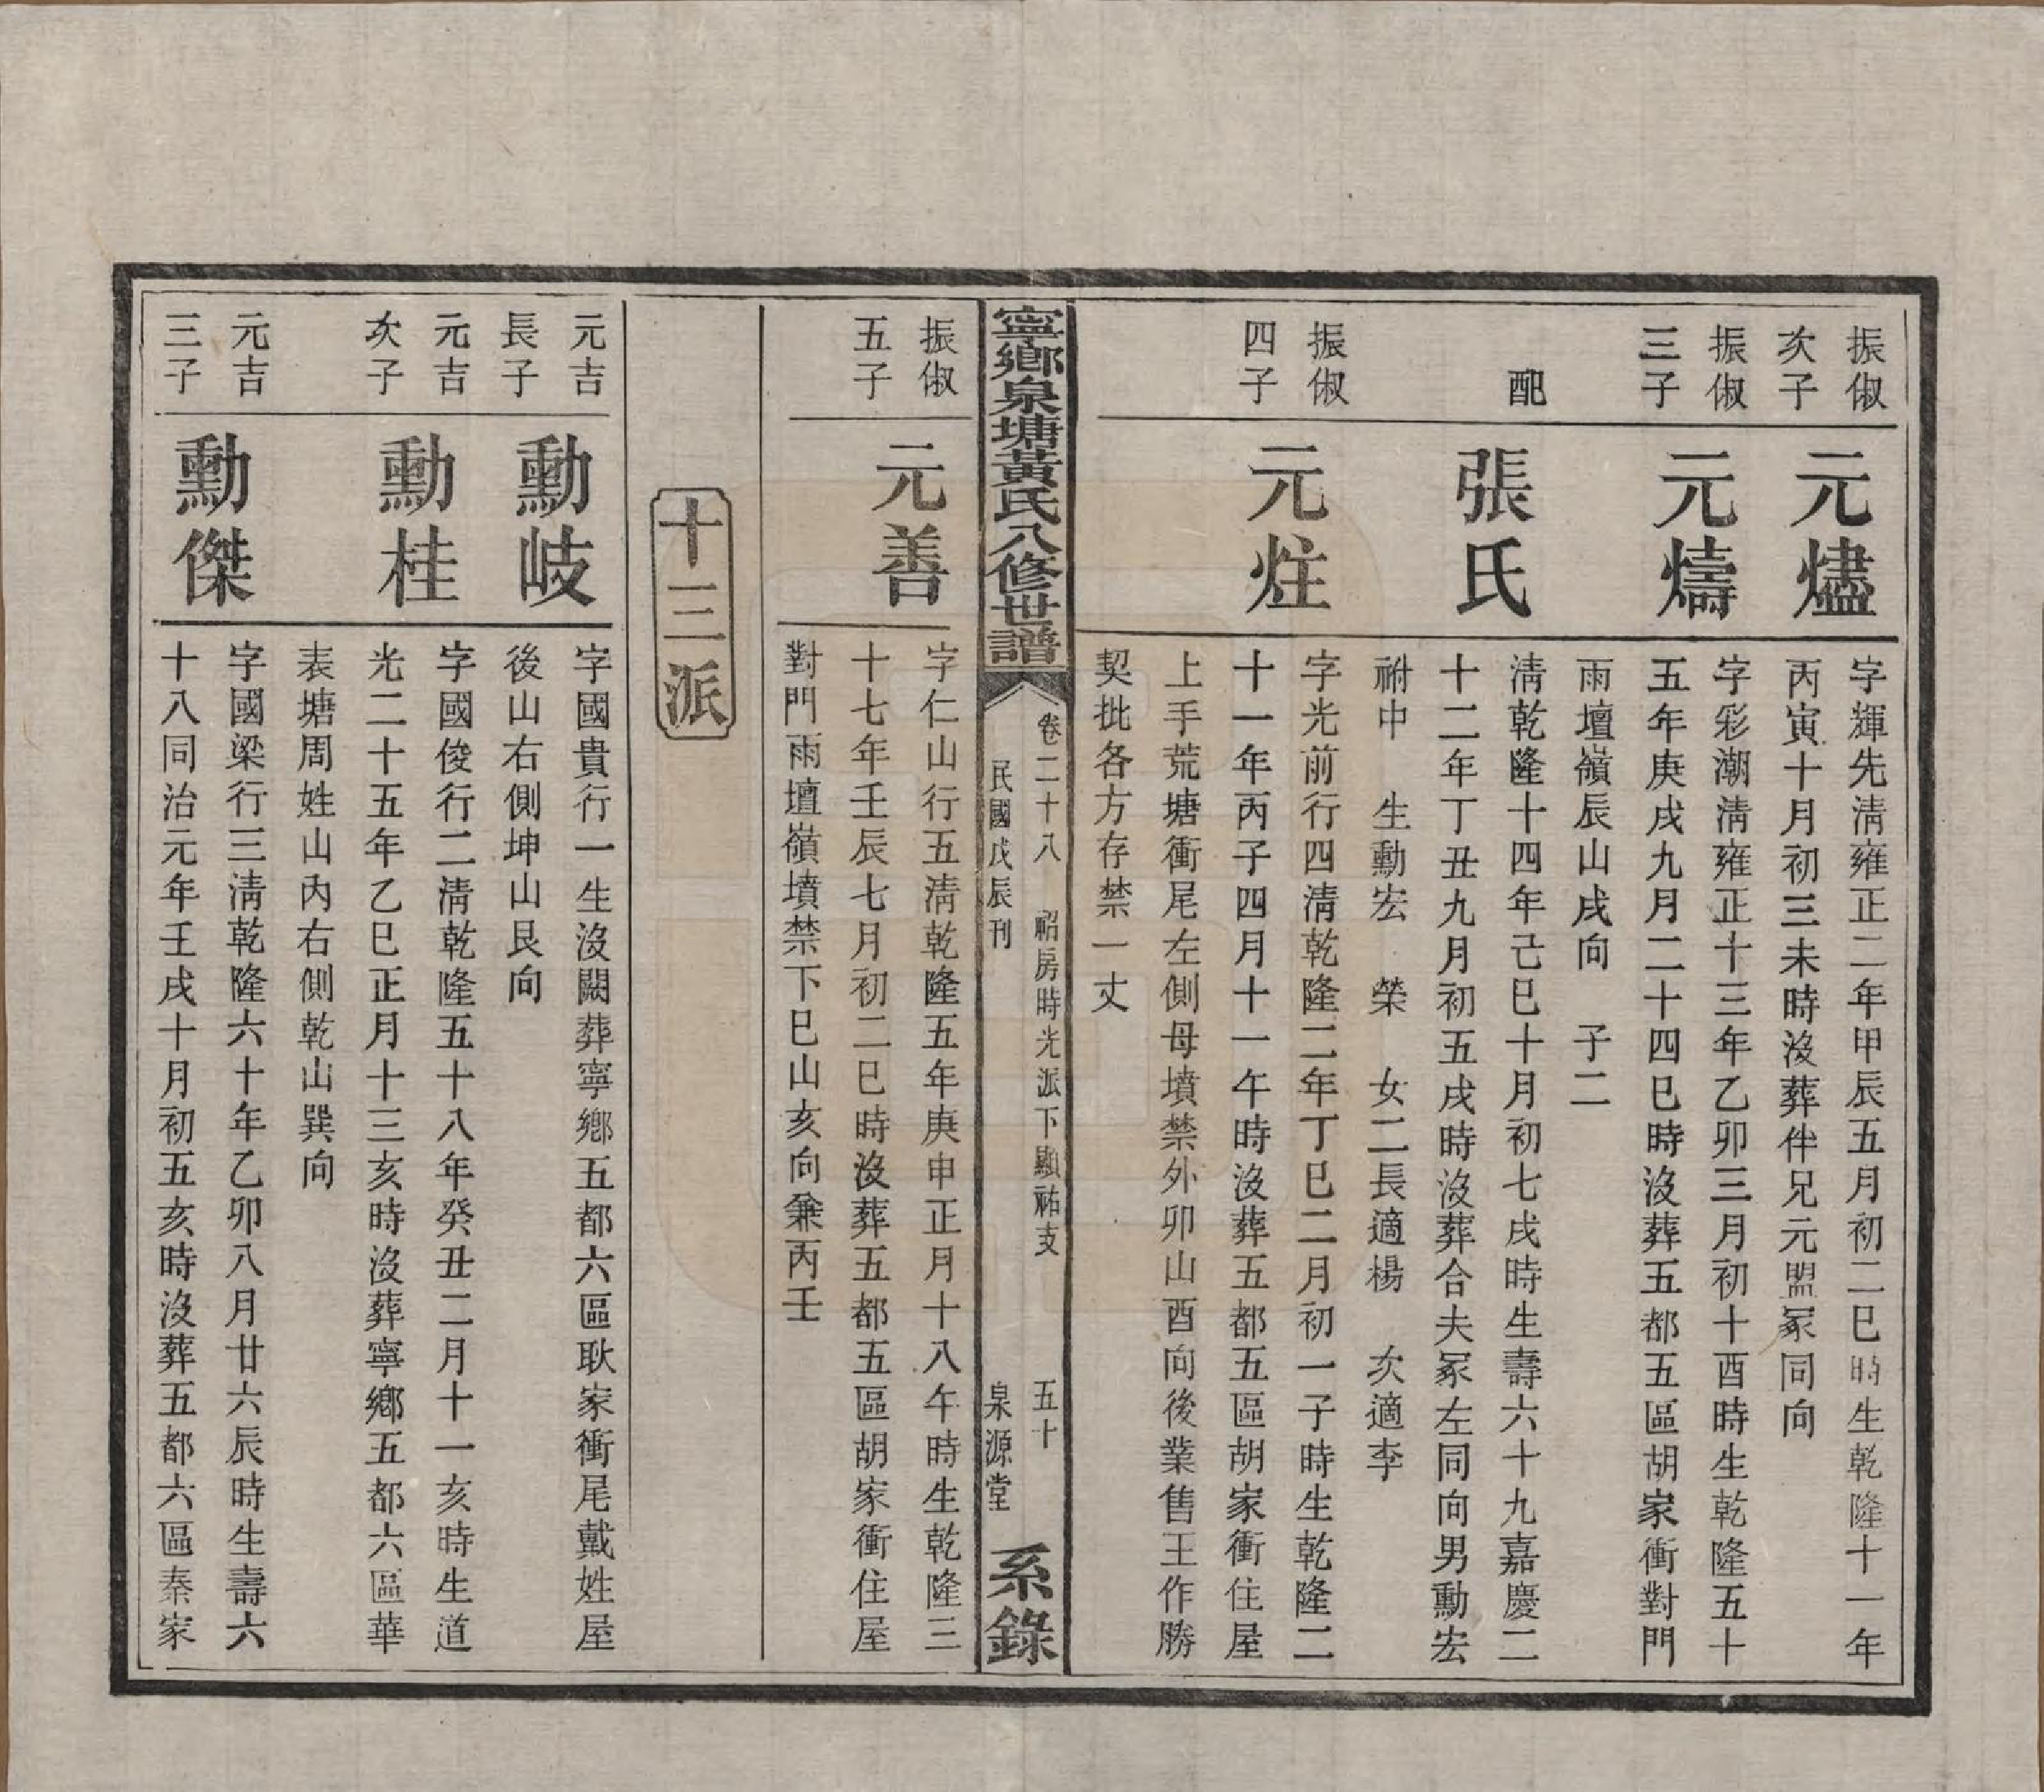 振俶
次子
元燼
字輝先淸雍正二年甲辰五月初二巳時生乾隆十一年
丙寅十月初三未時沒葬伴兄元盟冢同向
振俶
三子
元燽
字彩潮淸雍正十三年乙卯三月初十酉時生乾隆五十
五年庚戌九月二十四巳時沒葬五都五區胡家衝對門
雨壇嶺辰山戌向　子二
配
張氏
淸乾隆十四年己巳十月初七戌時生壽六十九嘉慶二
十二年丁丑九月初五戌時沒葬合夫冢左同向男勳宏
祔中　生勳宏　榮　女二長適楊　次適李
振俶
四子
元炷
字光前行四淸乾隆二年丁巳二月初一子時生乾隆二
十一年丙子四月十一午時沒葬五都五區胡家衝住屋
上手荒塘衝尾左側母墳禁外卯山酉向後業售王作勝
契批各方存禁一丈
寧鄉泉塘黃氏八修世譜
卷二十八　祒房時光派下顯祐支　五十
民國戊辰刊　泉源堂
系錄
振俶
五子
元善
字仁山行五淸乾隆五年庚申正月十八午時生乾隆三
十七年壬辰七月初二巳時沒葬五都五區胡家衝住屋
對門雨壇嶺墳禁下巳山亥向兼丙壬
十三派
元吉
長子
勳岐
字國貴行一生沒闕葬寧鄉五都六區耿家衝尾戴姓屋
後山右側坤山艮向
元吉
次子
勳桂
字國俊行二淸乾隆五十八年癸丑二月十一亥時生道
光二十五年乙巳正月十三亥時沒葬寧鄉五都六區華
表塘周姓山內右側乾山巽向
元吉
三子
勳傑
字國梁行三淸乾隆六十年乙卯八月廿六辰時生壽六
十八同治元年壬戌十月初五亥時沒葬五都六區秦家